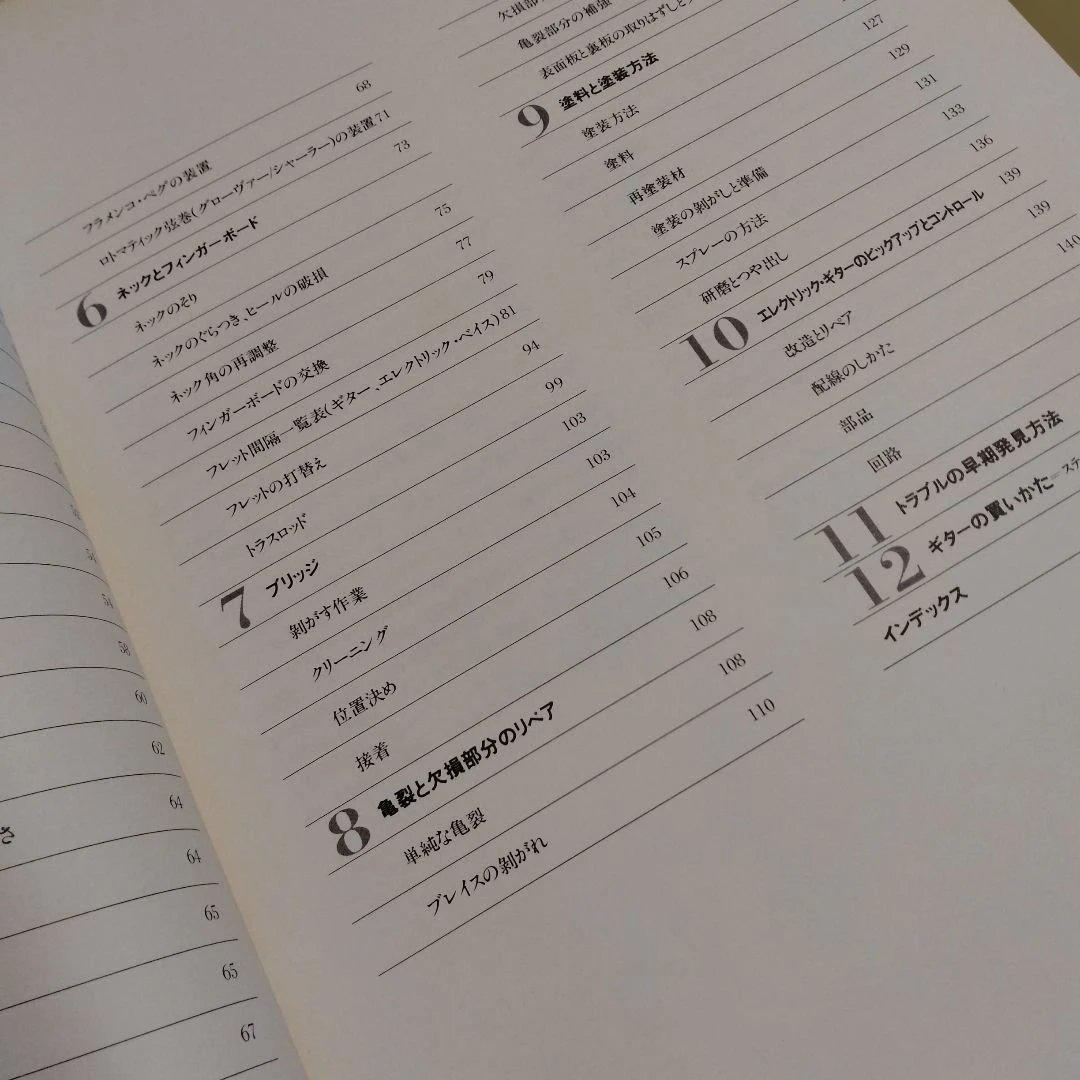 フラメンコ・ペグの装置 68
ロトマティック弦巻(グローヴァー/シャーラー)の装置71
6 ネックとフィンガーボード 73
ネックのそり
ネックのぐらつき、ヒールの破損 75
ネック角の再調整 77
フィンガーボードの交換 79
フレット間隔一覧表(ギター、エレクトリック・ベイス)81
フレットの打替え 94
トラスロッド 99
7 ブリッジ 103
剥がす作業 103
クリーニング 104
位置決め 105
接着 106
8 亀裂と欠損部分のリペア 108
単純な亀裂 108
ブレイスの剥がれ 110
欠損部分
亀裂部分の補強
表面板と裏板の取りはずしと
9 塗料と塗装方法
塗装方法
塗料 127
再塗装材 129
塗装の剥がしと準備 131
スプレーの方法 133
研磨とつや出し 136
10 エレクトリック・ギターのピックアップとコントロール 139
改造とリペア 139
配線のしかた 140
部品
回路
11 トラブルの早期発見方法
12 ギターの買いかた=ステ
インデックス
54
54
58
60
62
さ 64
64
65
65
67